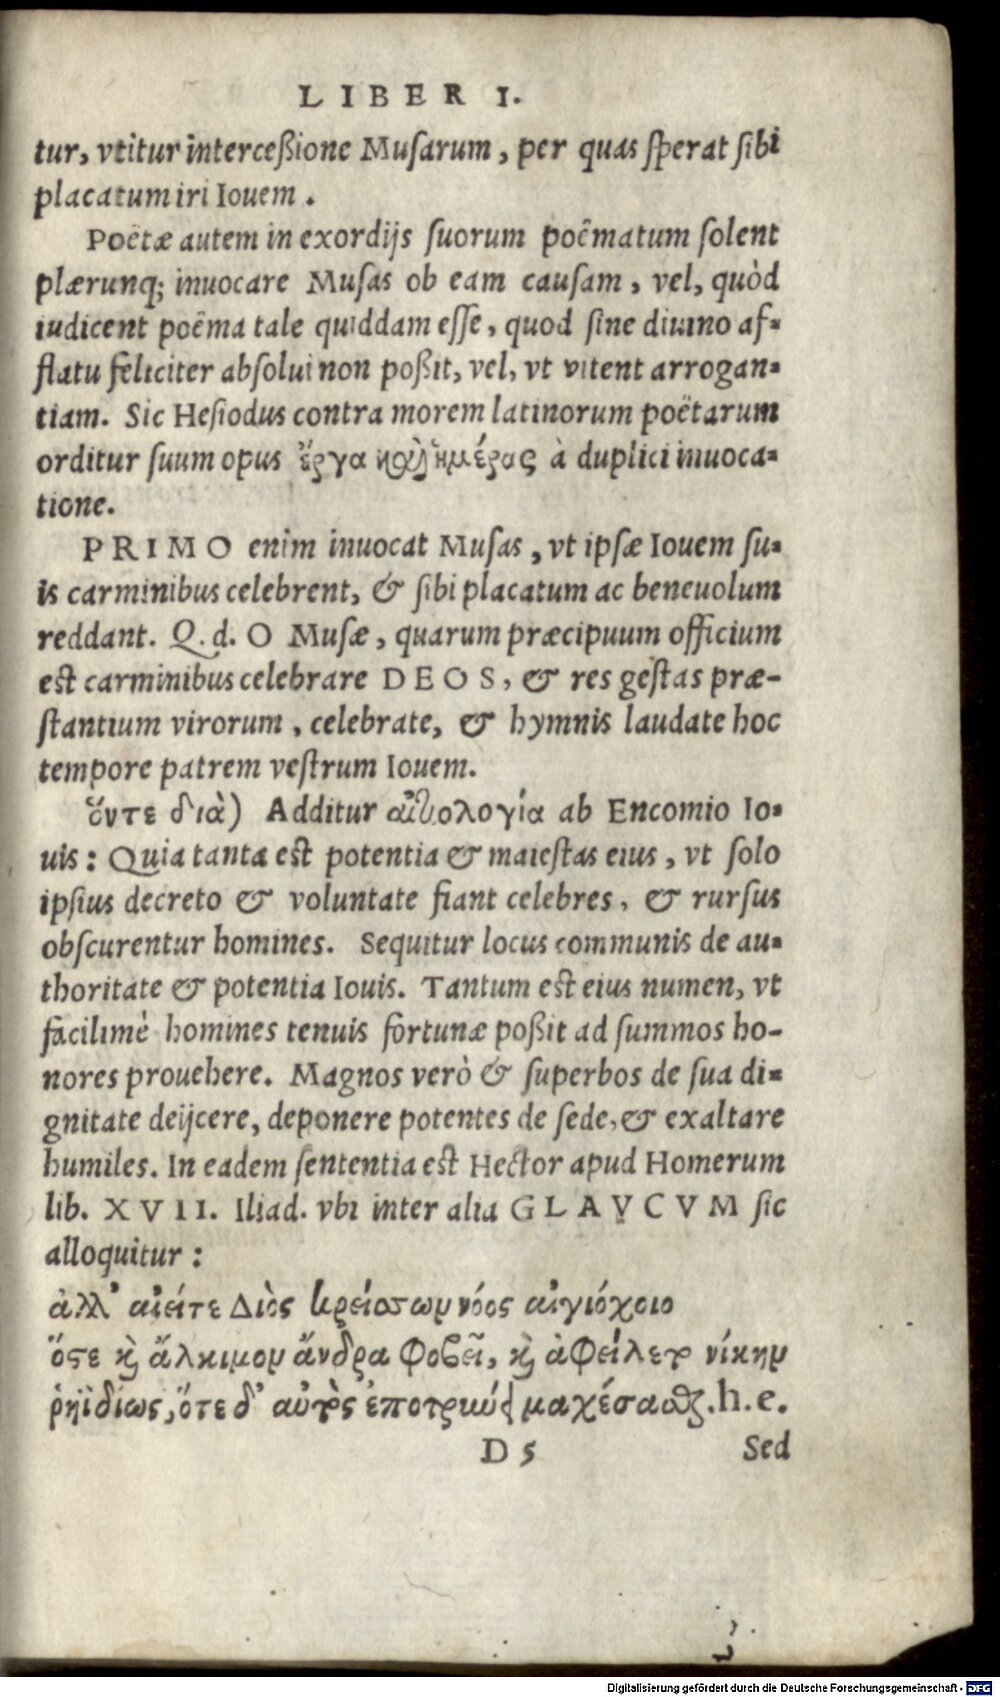 LIBER I.
tur, vtitur interceßione Musarum, per quas sperat sibi
placatum iri Iouem.
Poëtæ autem in exordijs suorum poëmatum solent
plærunq; inuocare Musas ob eam causam, vel, quòd
iudicent poëma tale quiddam esse, quod sine diuino af-
flatu feliciter absolui non poßit, vel, vt vitent arrogan-
tiam. Sic Hesiodus contra morem latinorum poëtarum
orditur suum opus ἔργα καὶ ἡμέρας à duplici inuoca-
tione.
PRIMO enim inuocat Musas, vt ipsæ Iouem su-
is carminibus celebrent, & sibi placatum ac beneuolum
reddant. Q.d. O Musæ, quarum præcipuum officium
est carminibus celebrare DEOS, & res gestas præ-
stantium virorum, celebrate, & hymnis laudate hoc
tempore patrem vestrum Iouem.
ὅντε διὰ) Additur αἰτιολογία ab Encomio Io-
uis: Quia tanta est potentia & maiestas eius, vt solo
ipsius decreto & voluntate fiant celebres, & rursus
obscurentur homines. Sequitur locus communis de au-
thoritate & potentia Iouis. Tantum est eius numen, vt
facilimè homines tenuis fortunæ poßit ad summos ho-
nores prouehere. Magnos verò & superbos de sua di-
gnitate deijcere, deponere potentes de sede, & exaltare
humiles. In eadem sententia est Hector apud Homerum
lib. XVII. Iliad. vbi inter alia GLAVCVM sic
alloquitur:
ἀλλ' αἰεί τε Διὸς κρείσσων νόος αἰγιόχοιο
ὅστε καὶ ἄλκιμον ἄνδρα φοβεῖ, καὶ ἀφείλετο νίκην
ῥηϊδίως, ὅτε δ' αὐτὸς ἐποτρύνει μαχέσασθαι. h.e.
D 5
Sed
Digitalisierung gefördert durch die Deutsche Forschungsgemeinschaft - DFG